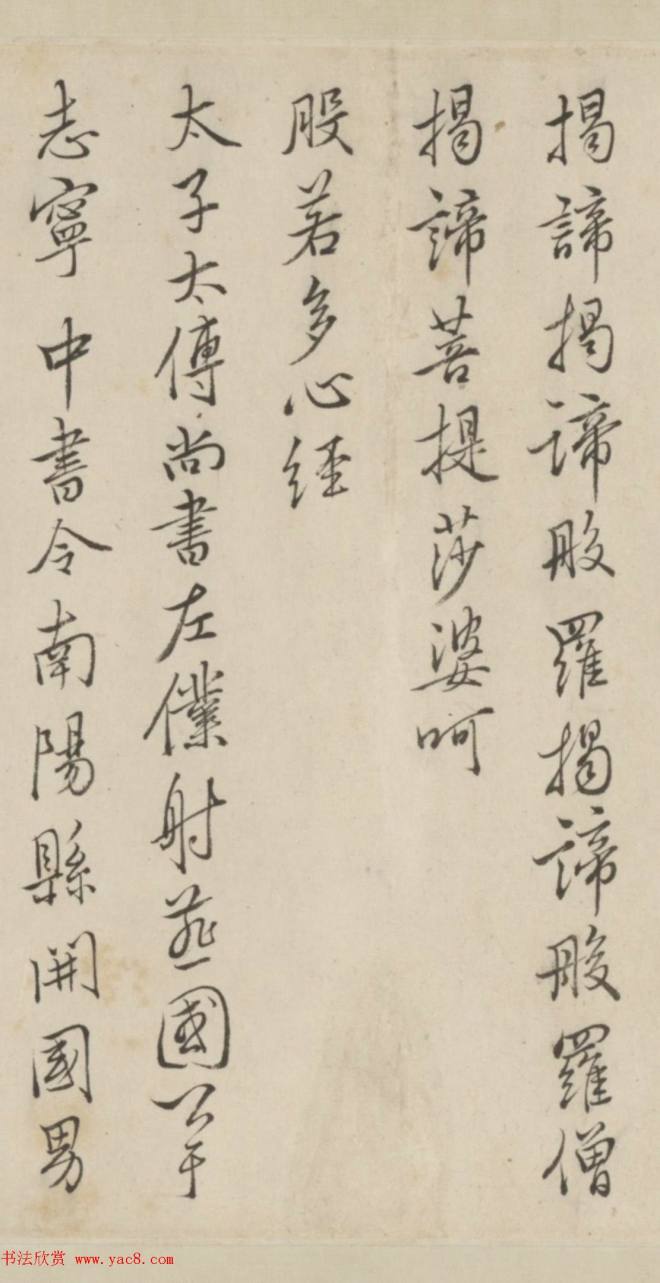 揭諦揭諦般羅揭諦般羅僧
揭諦菩提莎婆呵
般若多心経
太子太傅尚書左僕射燕國公于
志寧 中書令南陽縣開國男
书法欣赏 www.yac8.com